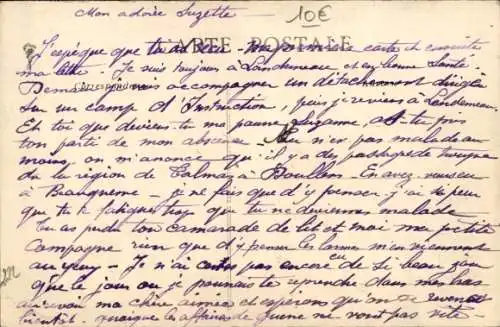 Mon adorée Suzette
10€
CARTE POSTALE
J'espère que tu as reçu ma première carte et ensuite
ma lettre. Je suis toujours à Landerneau et en bonne santé.
Demain je vais accompagner un détachement dirigé
Correspondance
sur un camp d'Instruction, puis je reviens à Landerneau
Et toi que deviens-tu ma pauvre Suzanne, as-tu pris
ton parti de mon absence. Tu n'es pas malade au
moins, on m'annonce qu'il y a des passages de troupe
de la région de Talmas à Doullens. En avez-vous eu
à Beauquesne - je ne fais que d'y penser - j'ai si peur
que tu te fatigues trop que tu ne deviennes malade
Tu as perdu ton camarade de lit et moi ma petite
compagne rien que d'y penser les larmes m'en viennent
aux yeux - Je n'ai certes pas encore eu de si beau jour
que le jour où je pourrai te reprendre dans mes bras
au revoir ma chère aimée et espérons qu'on se reverra
bientôt. quoique les affaires de guerre ne vont pas vite -